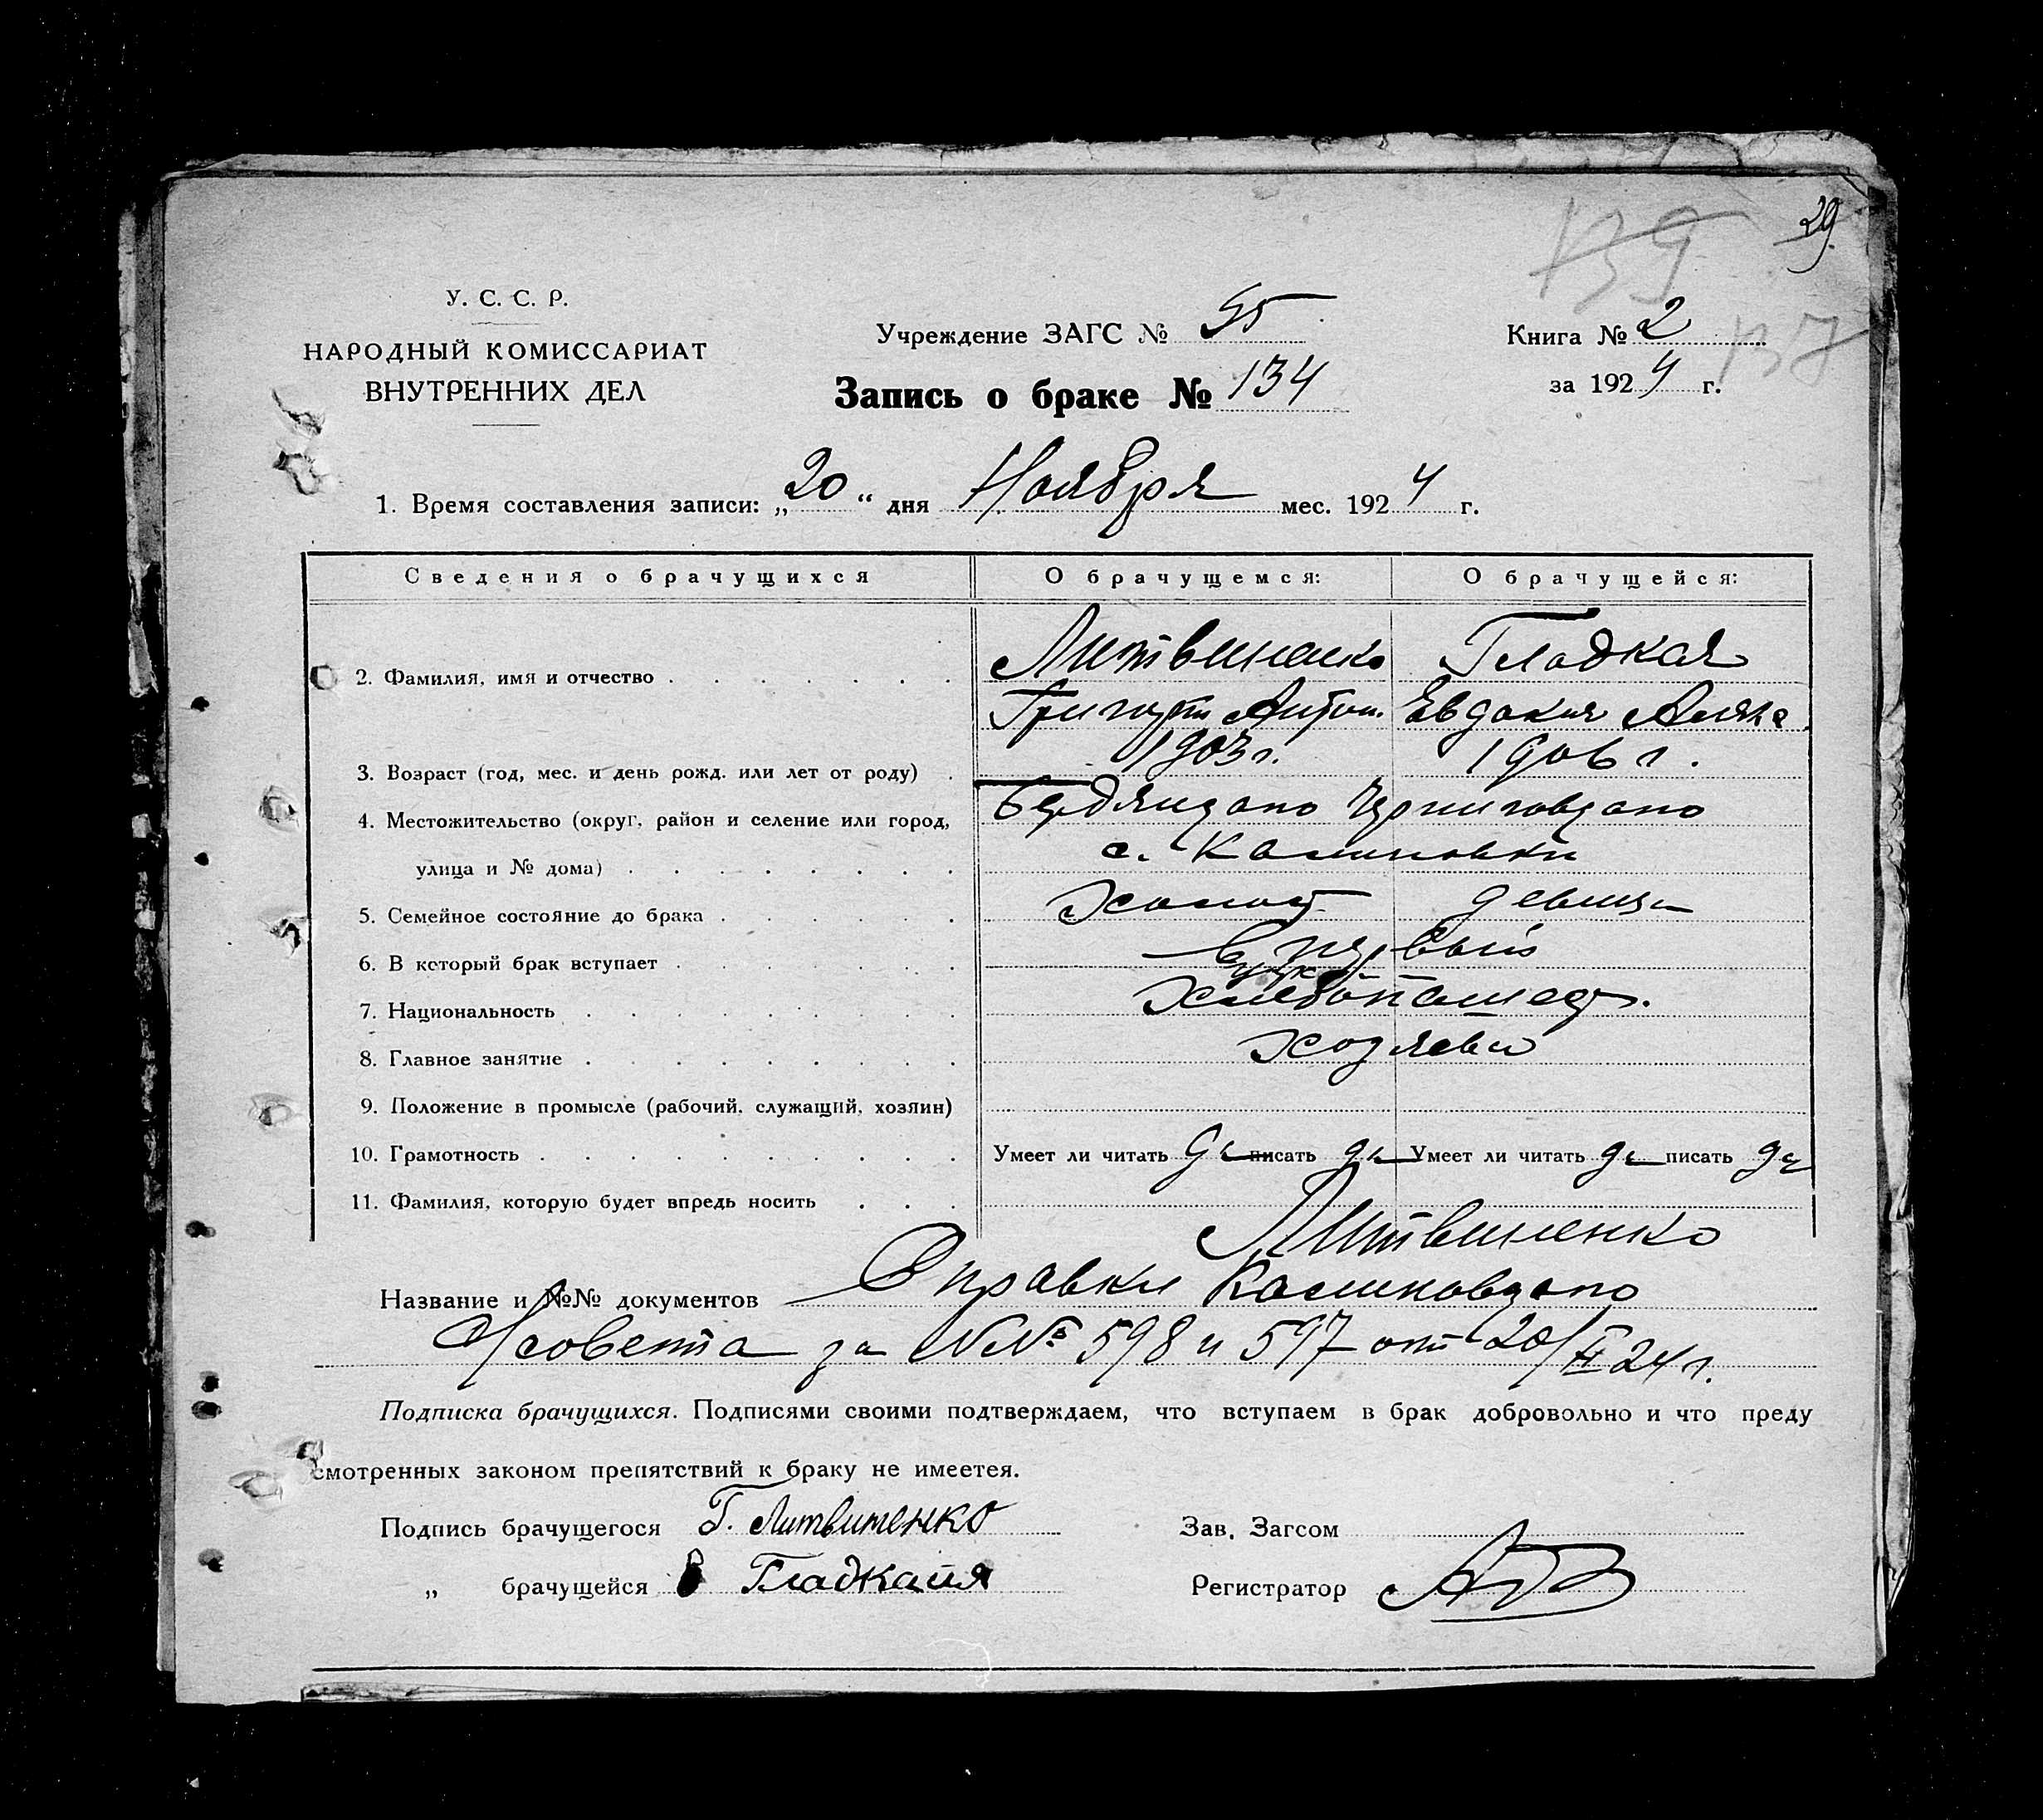 29
139
У. С. С. Р.
НАРОДНЫЙ КОМИССАРИАТ
ВНУТРЕННИХ ДЕЛ
Учреждение ЗАГС № 55
Книга № 2
137
Запись о браке № 134
за 1924 г.
1. Время составления записи: „20“ дня Ноября мес. 1924 г.
Сведения о брачущихся О брачущемся: О брачущейся:
2. Фамилия, имя и отчество Литвиненко Гладкая
Григорий Антон. Евдокия
3. Возраст (год, мес. и день рожд. или лет от роду) 1903 г. 1906 г.
4. Местожительство (округ, район и селение или город, Бердянского Черниговского
улица и № дома) с. Калиновки
5. Семейное состояние до брака Холост девица
6. В который брак вступает в первый
7. Национальность Хлебопашест.
8. Главное занятие Хозяева
9. Положение в промысле (рабочий, служащий, хозяин)
10. Грамотность Умеет ли читать да писать да Умеет ли читать да писать да
11. Фамилия, которую будет впредь носить
Литвиненко
Название и №№ документов Справки Калиновского
с/совета за №№ 598 и 597 от 20/XI 24 г.
Подписка брачущихся. Подписями своими подтверждаем, что вступаем в брак добровольно и что преду
смотренных законом препятствий к браку не имеетея.
Подпись брачущегося Г. Литвиненко Зав. Загсом
„ брачущейся Гладкайя Регистратор